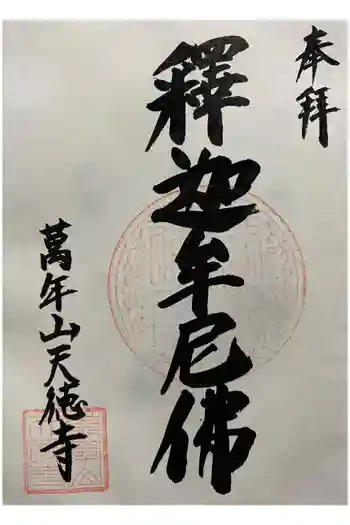 奉拝
釋迦牟尼佛
萬年山天徳寺